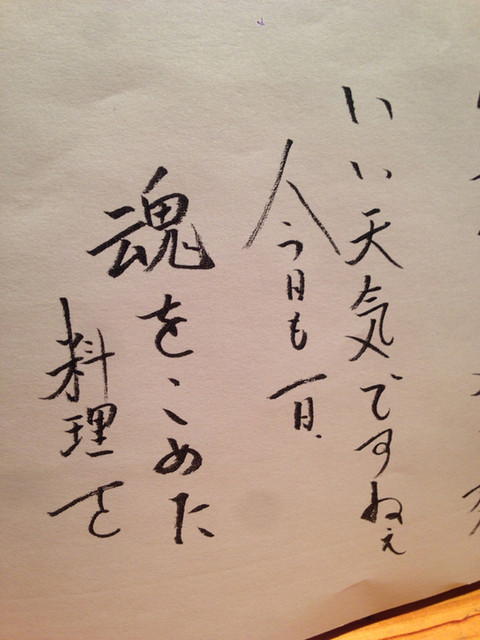 いい天気ですねぇ
今日も一日、
魂をこめた
料理を